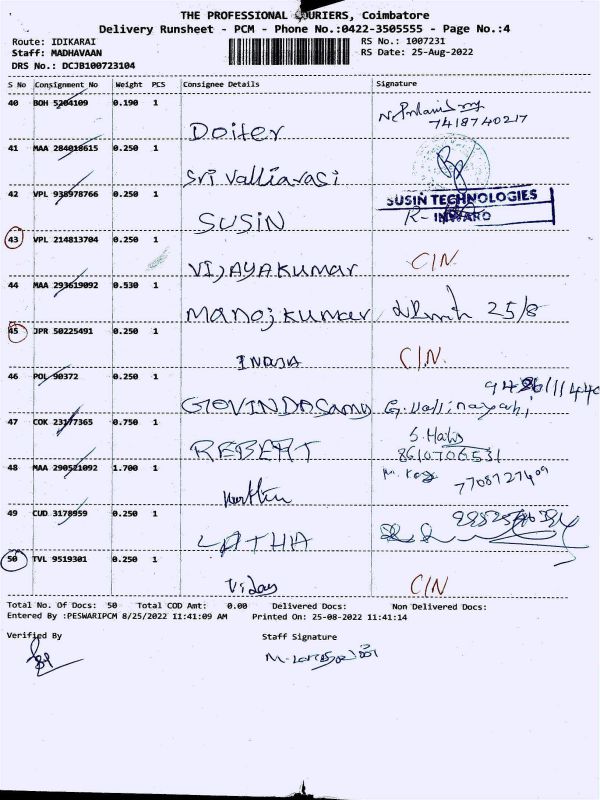 THE PROFESSIONAL COURIERS, Coimbatore
Delivery Runsheet - PCM - Phone No.:0422-3505555 - Page No.:4
Route: IDIKARAI
RS No.: 1007231
Staff: MADHAVAAN
RS Date: 25-Aug-2022
DRS No.: DCJB100723104
S No Consignment No Weight PCS Consignee Details Signature
40 BOH 5204109 0.190 1
Doiter
7418740217
41 MAA 284018615 0.250 1
Sri Valliarasi
42 VPL 938978766 0.250 1
SUSIN TECHNOLOGIES
INWARD
SUSIN R-
43 VPL 214813704 0.250 1
VIJAYAKUMAR C/N
44 MAA 293619092 0.530 1
Manoj Kumar 25/8
45 JPR 50225491 0.250 1
C/N
46 POL 90372 0.250 1
GOVINDASamy G.
47 COK 23177365 0.750 1
8610706531
REBERT
48 MAA 290521092 1.700 1
49 CUD 3178959 0.250 1
LATHA
50 TVL 9519301 0.250 1
C/N
Total No. Of Docs: 50 Total COD Amt: 0.00 Delivered Docs: Non Delivered Docs:
Entered By :PESWARIPCM 8/25/2022 11:41:09 AM Printed On: 25-08-2022 11:41:14
Verified By Staff Signature